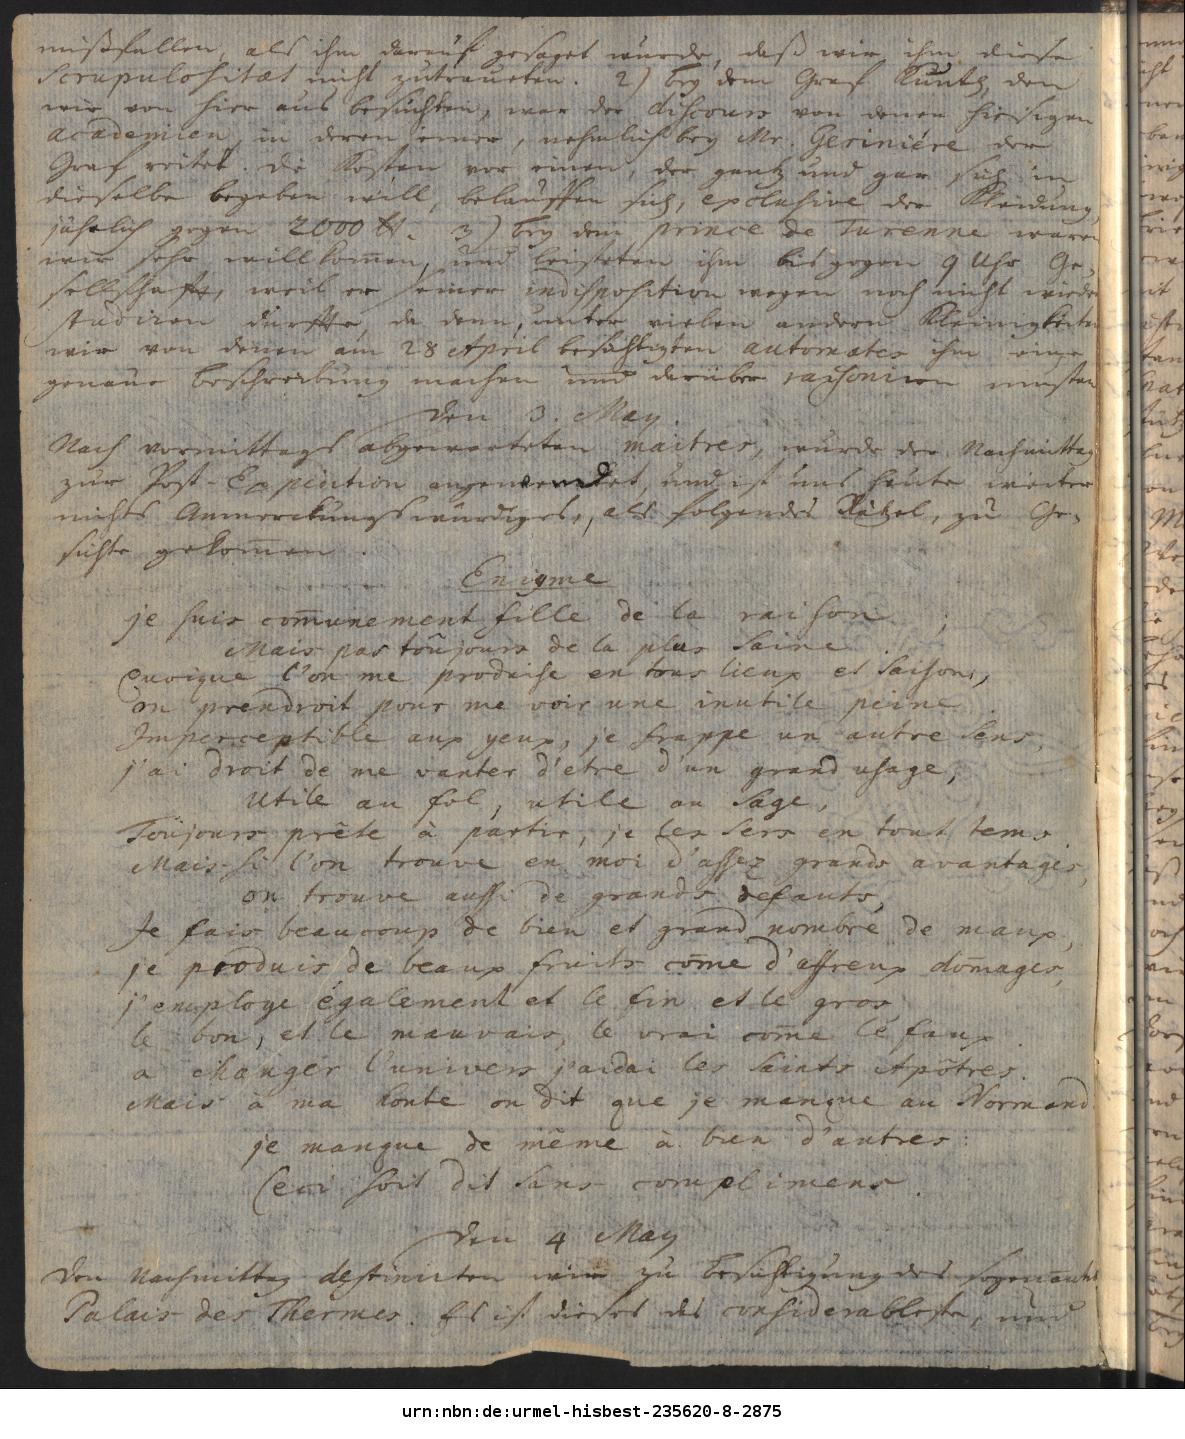 mißfallen, als ihm darauf gesaget wurde, daß wir ihm diese
Scrupulositæt nicht zutraueten. 2) bey dem Graf Kuntz, den
wir von hier aus besuchten, war der discours von denen hiesigen
academien, in deren einer, nehmlich bey Mr. Geriniére der
Graf reitet. Die Kosten vor einen, der gantz und gar sich in
dieselbe begeben will, belauffen sich, exclusive der Kleidung,
jährlich gegen 2000 tt. 3) bey dem prince de Turenne waren
wir sehr willkom̄en, und leisteten ihm bis gegen 9 Uhr Ge-
sellschafft, weil er seiner indisposition wegen noch nicht wieder
studiren durffte, da denn, unter vielen andern Kleinigkeiten
wir von denen am 28 April besichtigten automates ihm eine
genaue Beschreibung machen und darüber raisoniren musten
Den 3. May.
Nach vormittags abgewarteten maitres, wurde der Nachmittag
zur Post-Expedition angewendet, und ist uns heute weiter
nichts Anmerckungswürdiges, als folgendes Rätzel, zu Ge-
sichte gekom̄en.
Enigme
je suis com̄unement fille de la raison;
Mais pas toûjours de la plus saine
Quoique l'on me produise en tous lieux et saisons,
on prendroit pour me voir une inutile peine.
Imperceptible aux yeux, je frappe un autre sens,
j'ai droit de me vanter d'etre d'un grand usage,
Utile au fol, utile au sage,
Toûjours prête à partir, je les sers en tout tems
Mais si l'on trouve en moi d'assez grands avantages,
on trouve aussi de grands defauts,
Je fais beaucoup de bien et grand nombre de maux,
je produis de beaux fruits com̄e d'affreux dom̄ages,
j'employe également et le fin et le gros,
le bon, et le mauvais, le vrai com̄e le faux.
a changer l'univers j'aidai les Saints Apôtres.
Mais à ma honte on dit que je manque au Normand
je manque de même à bien d'autres:
Ceci soit dit sans complimens.
Den 4 May
Den Nachmittag destinirten wir zu Besichtigung des sogenan̄ten
Palais des Thermes. Es ist dieses das considerableste, und
urn:nbn:de:urmel-hisbest-235620-8-2875